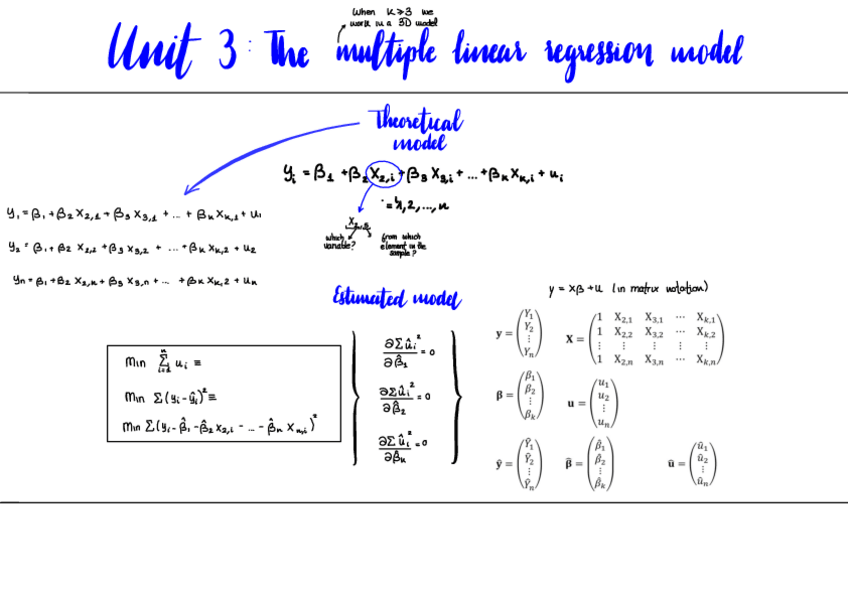 When K≥3 we
work in a 3D model
Unit 3: The multiple linear regression model
Theoretical
model
yᵢ = β₁ + β₂ X₂,ᵢ + β₃ X₃,ᵢ + ... + βₖ Xₖ,ᵢ + uᵢ
i = 1, 2, ..., n
X₂,ᵢ
which
variable?
from which
element in the
sample?
y₁ = β₁ + β₂ X₂,₁ + β₃ X₃,₁ + ... + βₖ Xₖ,₁ + u₁
y₂ = β₁ + β₂ X₂,₂ + β₃ X₃,₂ + ... + βₖ Xₖ,₂ + u₂
yₙ = β₁ + β₂ X₂,ₙ + β₃ X₃,ₙ + ... + βₖ Xₖ,₂ + uₙ
Estimated model
y = Xβ + u (in matrix notation)
Min Σⁿᵢ₌₁ uᵢ ≡
Min Σ(yᵢ - ŷᵢ)² ≡
Min Σ(yᵢ - β̂₁ - β̂₂ X₂,ᵢ - ... - β̂ₖ Xₖ,ᵢ)²
∂Σûᵢ² / ∂β̂₁ = 0
∂Σûᵢ² / ∂β̂₂ = 0
∂Σûᵢ² / ∂β̂ₖ = 0
y = (Y₁ Y₂ ⋮ Yₙ)
X = (1 X₂,₁ X₃,₁ ⋯ Xₖ,₁
1 X₂,₂ X₃,₂ ⋯ Xₖ,₂
⋮ ⋮ ⋮ ⋮ ⋮
1 X₂,ₙ X₃,ₙ ⋯ Xₖ,ₙ)
β = (β₁ β₂ ⋮ βₖ)
u = (u₁ u₂ ⋮ uₙ)
ŷ = (Ŷ₁ Ŷ₂ ⋮ Ŷₙ)
β̂ = (β̂₁ β̂₂ ⋮ β̂ₖ)
û = (û₁ û₂ ⋮ ûₙ)